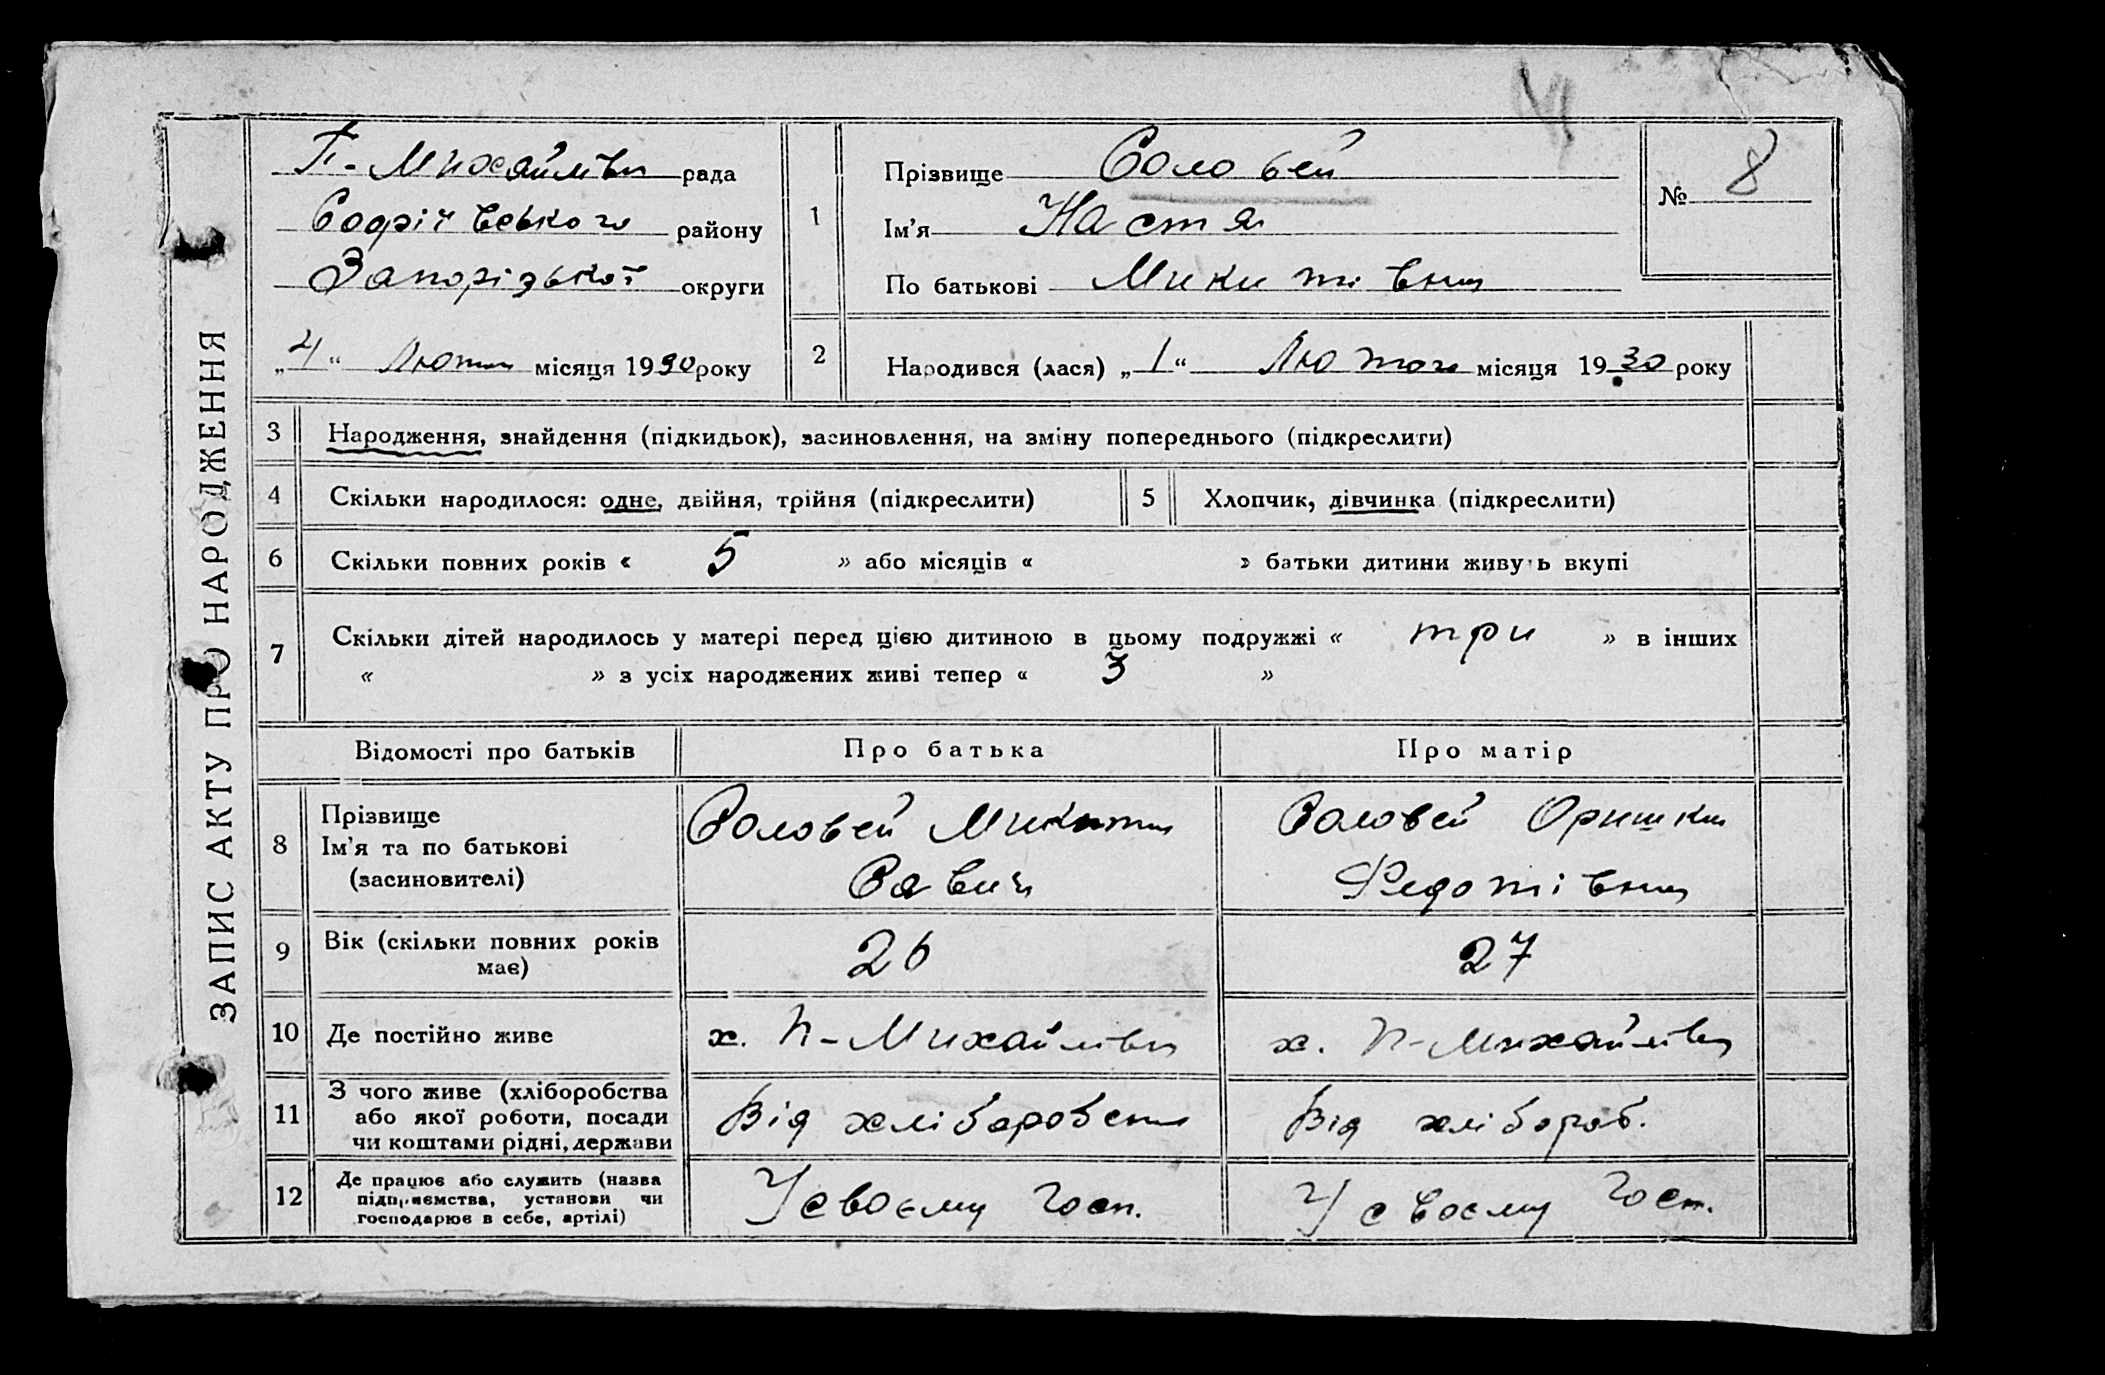 ЗАПИС АКТУ ПРО НАРОДЖЕННЯ
П-Михайлівка рада
Софіївського району
Запорізької округи
„4“ Лютня місяця 1930 року
1
Прізвище Соловей
Ім'я Настя
По батькові Микитівна
№ 8
2
Народився (лася) „1“ Лютого місяця 1930 року
3 Народження, знайдення (підкидьок), засиновлення, на зміну попереднього (підкреслити)
4 Скільки народилося: одне, двійня, трійня (підкреслити)
5 Хлопчик, дівчинка (підкреслити)
6 Скільки повних років « 5 » або місяців « » батьки дитини живуть вкупі
7 Скільки дітей народилось у матері перед цією дитиною в цьому подружжі « три » в інших
« » з усіх народжених живі тепер « 3 »
Відомості про батьків Про батька Про матір
8 Прізвище
Ім'я та по батькові
(засиновителі)
Соловей Микита
Савич
Соловей Оришка
Федотівна
9 Вік (скільки повних років
має)
26
27
10 Де постійно живе
х. П-Михайлівка
х. П-Михайлівка
11 З чого живе (хліборобства
або якої роботи, посади
чи коштами рідні, держави
Від хліборобства
Від хлібороб.
12 Де працює або служить (назва
підприємства, установи чи
господарює в себе, артілі)
У своєму госп.
У своєму госп.